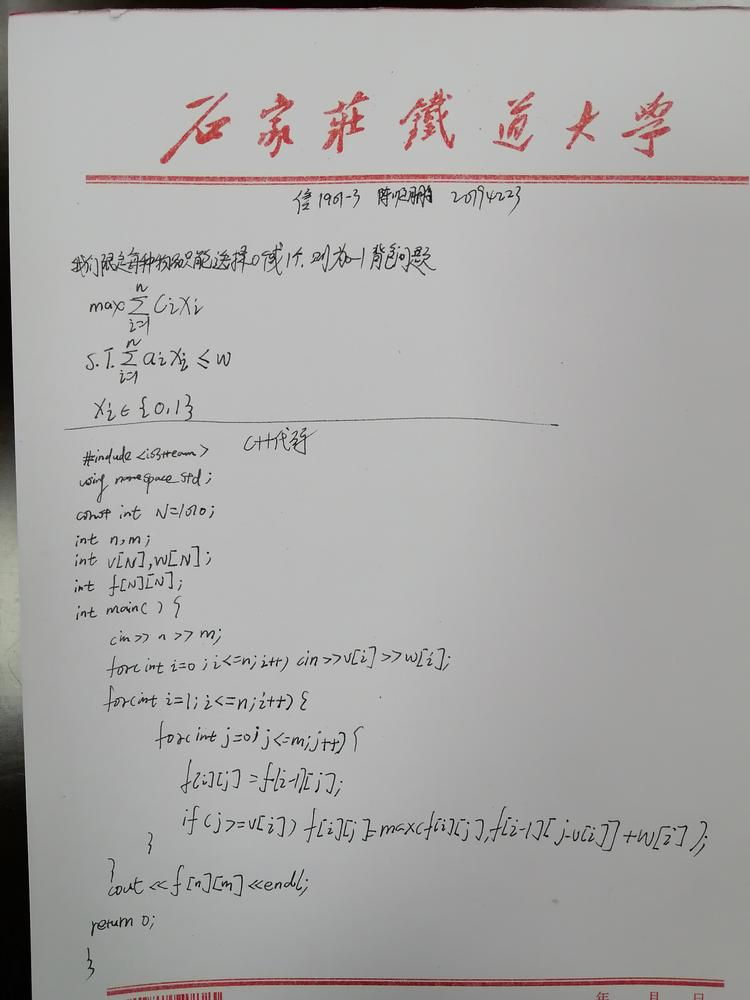 石家莊鐵道大學
信1901-3 陈顺鹏 20194223
我们限定每种物品只能选择0或1个,则为0-1背包问题
max∑_{i=1}^{n} CiXi
S.T. ∑_{i=1}^{n} aiXi ≤ w
Xi∈{0,1}
C++代码
#include<iostream>
using namespace std;
const int N=1010;
int n,m;
int v[N],W[N];
int f[N][N];
int main( ) {
cin>> n >> m;
for(int i=0;i<=n;i++) cin>>v[i]>>w[i];
for(int i=1;i<=n;i++) {
for(int j=0;j<=m;j++) {
f[i][j]=f[i-1][j];
if(j>=v[i]) f[i][j]=max(f[i][j],f[i-1][j-v[i]]+w[i]);
}
}
cout<<f[n][m]<<endl;
return 0;
}
年 月 日